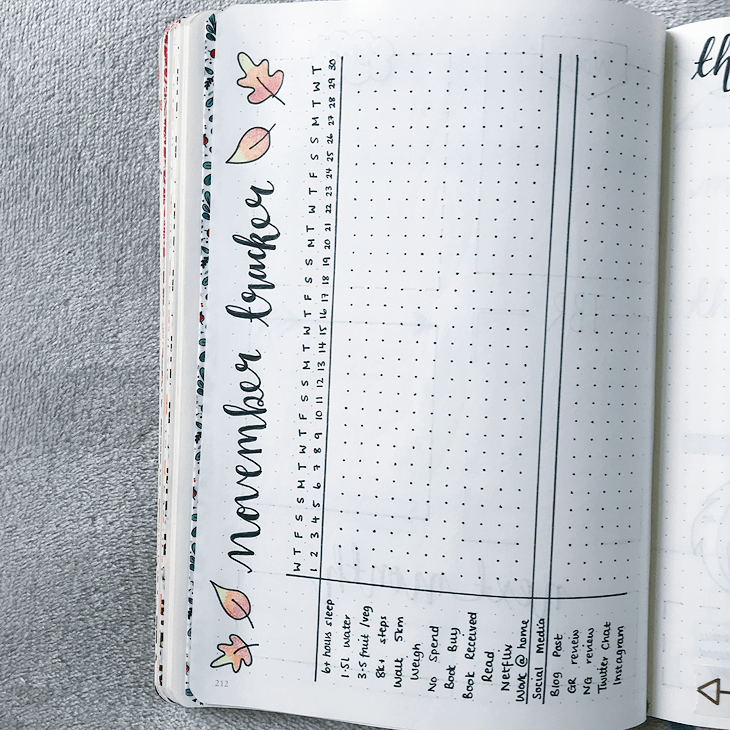 november tracker
W T F S S M T W T F S S M T W T F S S M T W T F S S M T W T
1 2 3 4 5 6 7 8 9 10 11 12 13 14 15 16 17 18 19 20 21 22 23 24 25 26 27 28 29 30
6+ hours sleep
1.5L water
3-5 fruit /veg
8k+ steps
Walk 5km
Weigh
No Spend
Book Buy
Book Received
Read
NetFlix
Work @ home
Social Media
Blog Post
GR review
NG review
Twitter Chat
Instagram
212
th